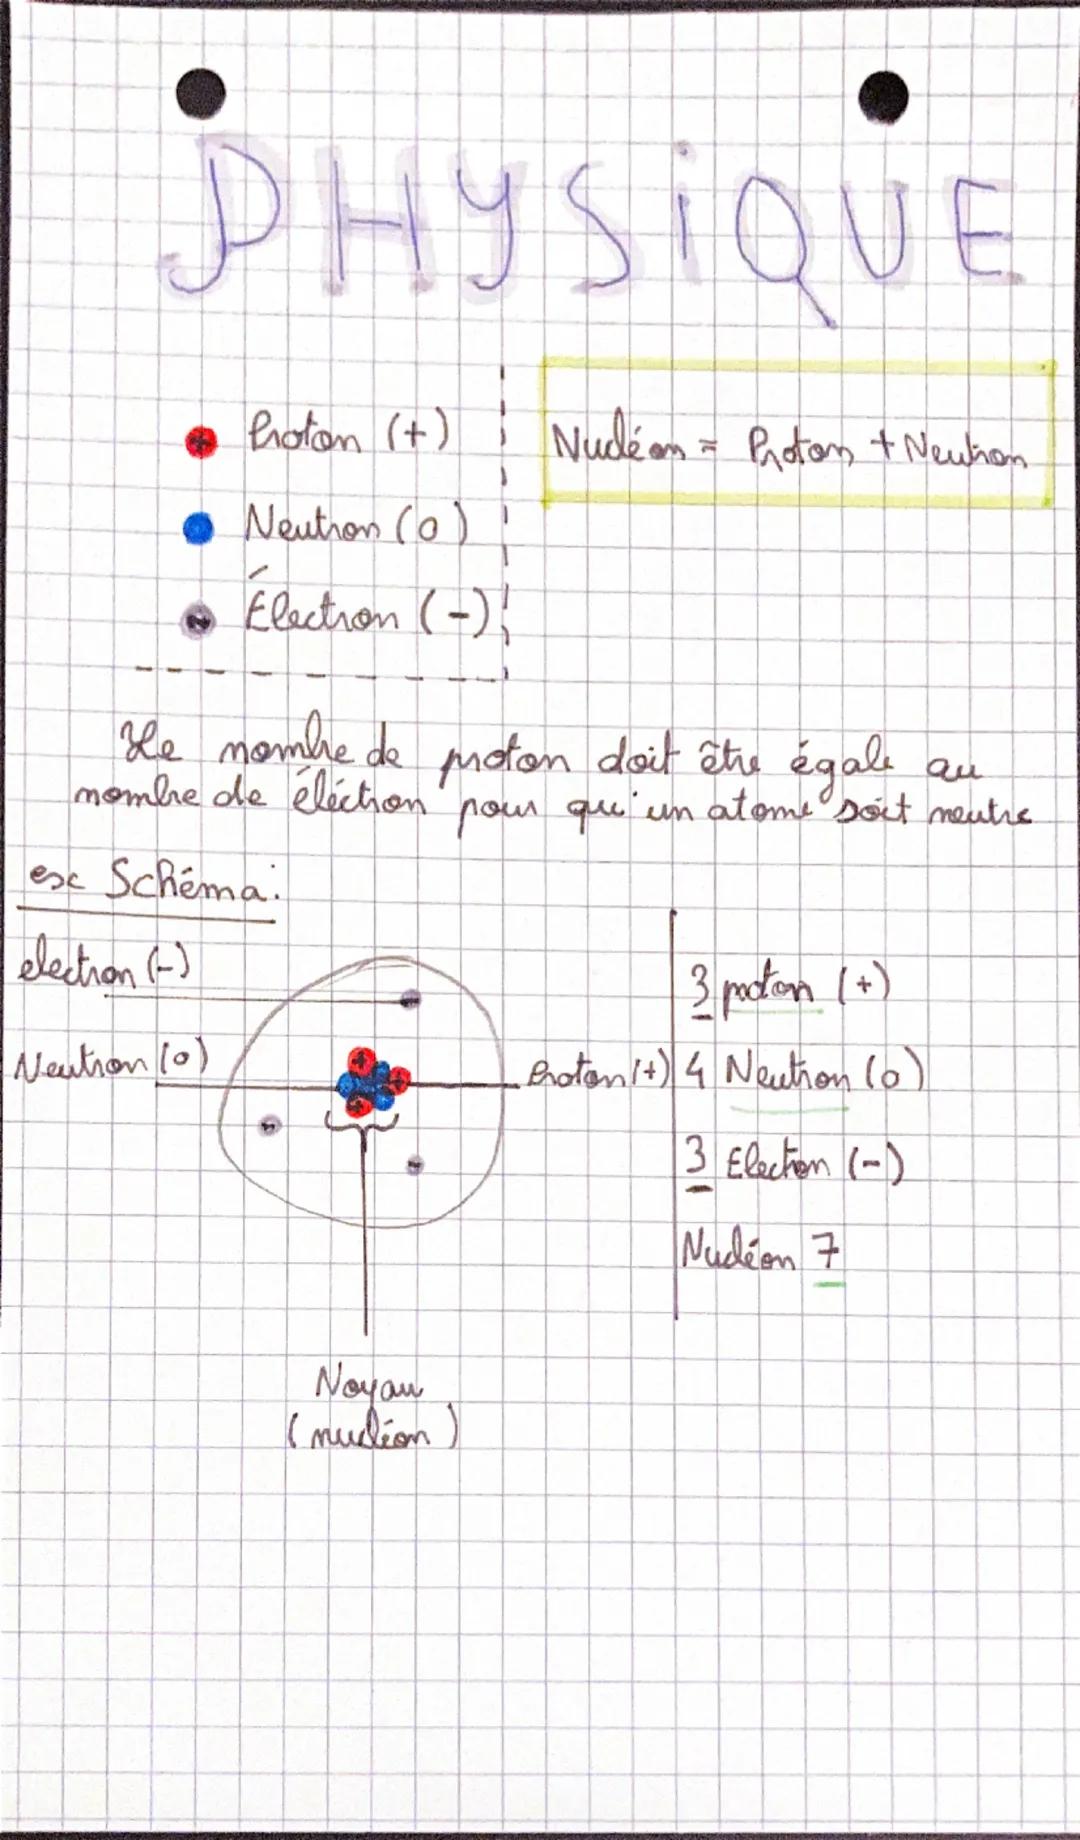 PHYSiQUE
Proton (+)
Nucléon = Proton + Neutron
Neutron (0)
Électron (-)
Le nombre de proton doit être égale au
nombre de éléctron pour qu'un atome soit neutre
ex Schéma:
electron (-)
Neutron (0)
Proton (+)
Noyau
(nucléon)
3 proton (+)
4 Neutron (0)
3 Electron (-)
Nucléon 7